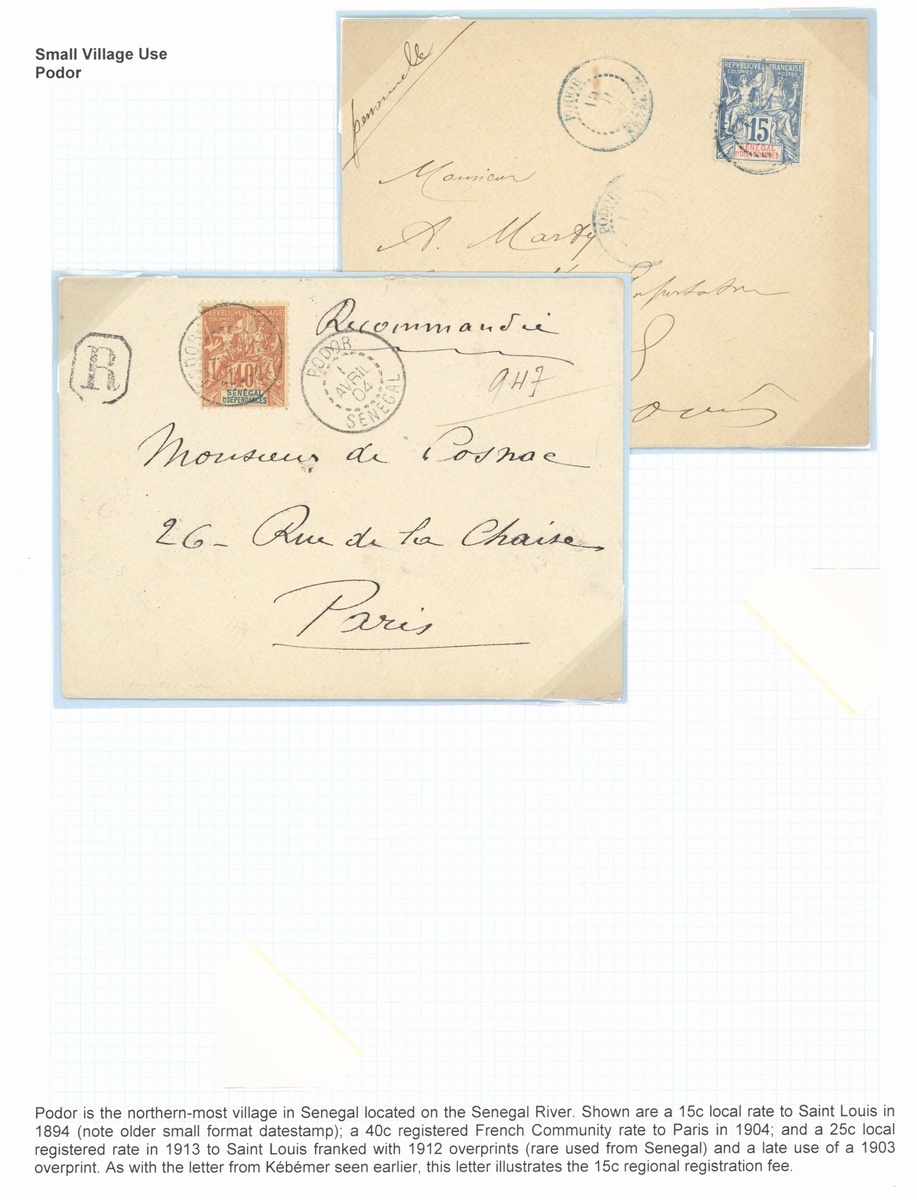 Small Village Use
Podor
personnelle
PODOR
15
REPUBLIQUE FRANÇAISE
COLONIES POSTES
15
SÉNÉGAL
ET DÉPENDANCES
Monsieur
A. Marty
PODOR
R
REPUBLIQUE FRANÇAISE
40
SÉNÉGAL
ET DÉPENDANCES
PODOR
Recommandée
PODOR
1
AVRIL
04
SENEGAL
947
Monsieur de Posnac
26 - Rue de la Chaise
Paris
Podor is the northern-most village in Senegal located on the Senegal River. Shown are a 15c local rate to Saint Louis in
1894 (note older small format datestamp); a 40c registered French Community rate to Paris in 1904; and a 25c local
registered rate in 1913 to Saint Louis franked with 1912 overprints (rare used from Senegal) and a late use of a 1903
overprint. As with the letter from Kébémer seen earlier, this letter illustrates the 15c regional registration fee.